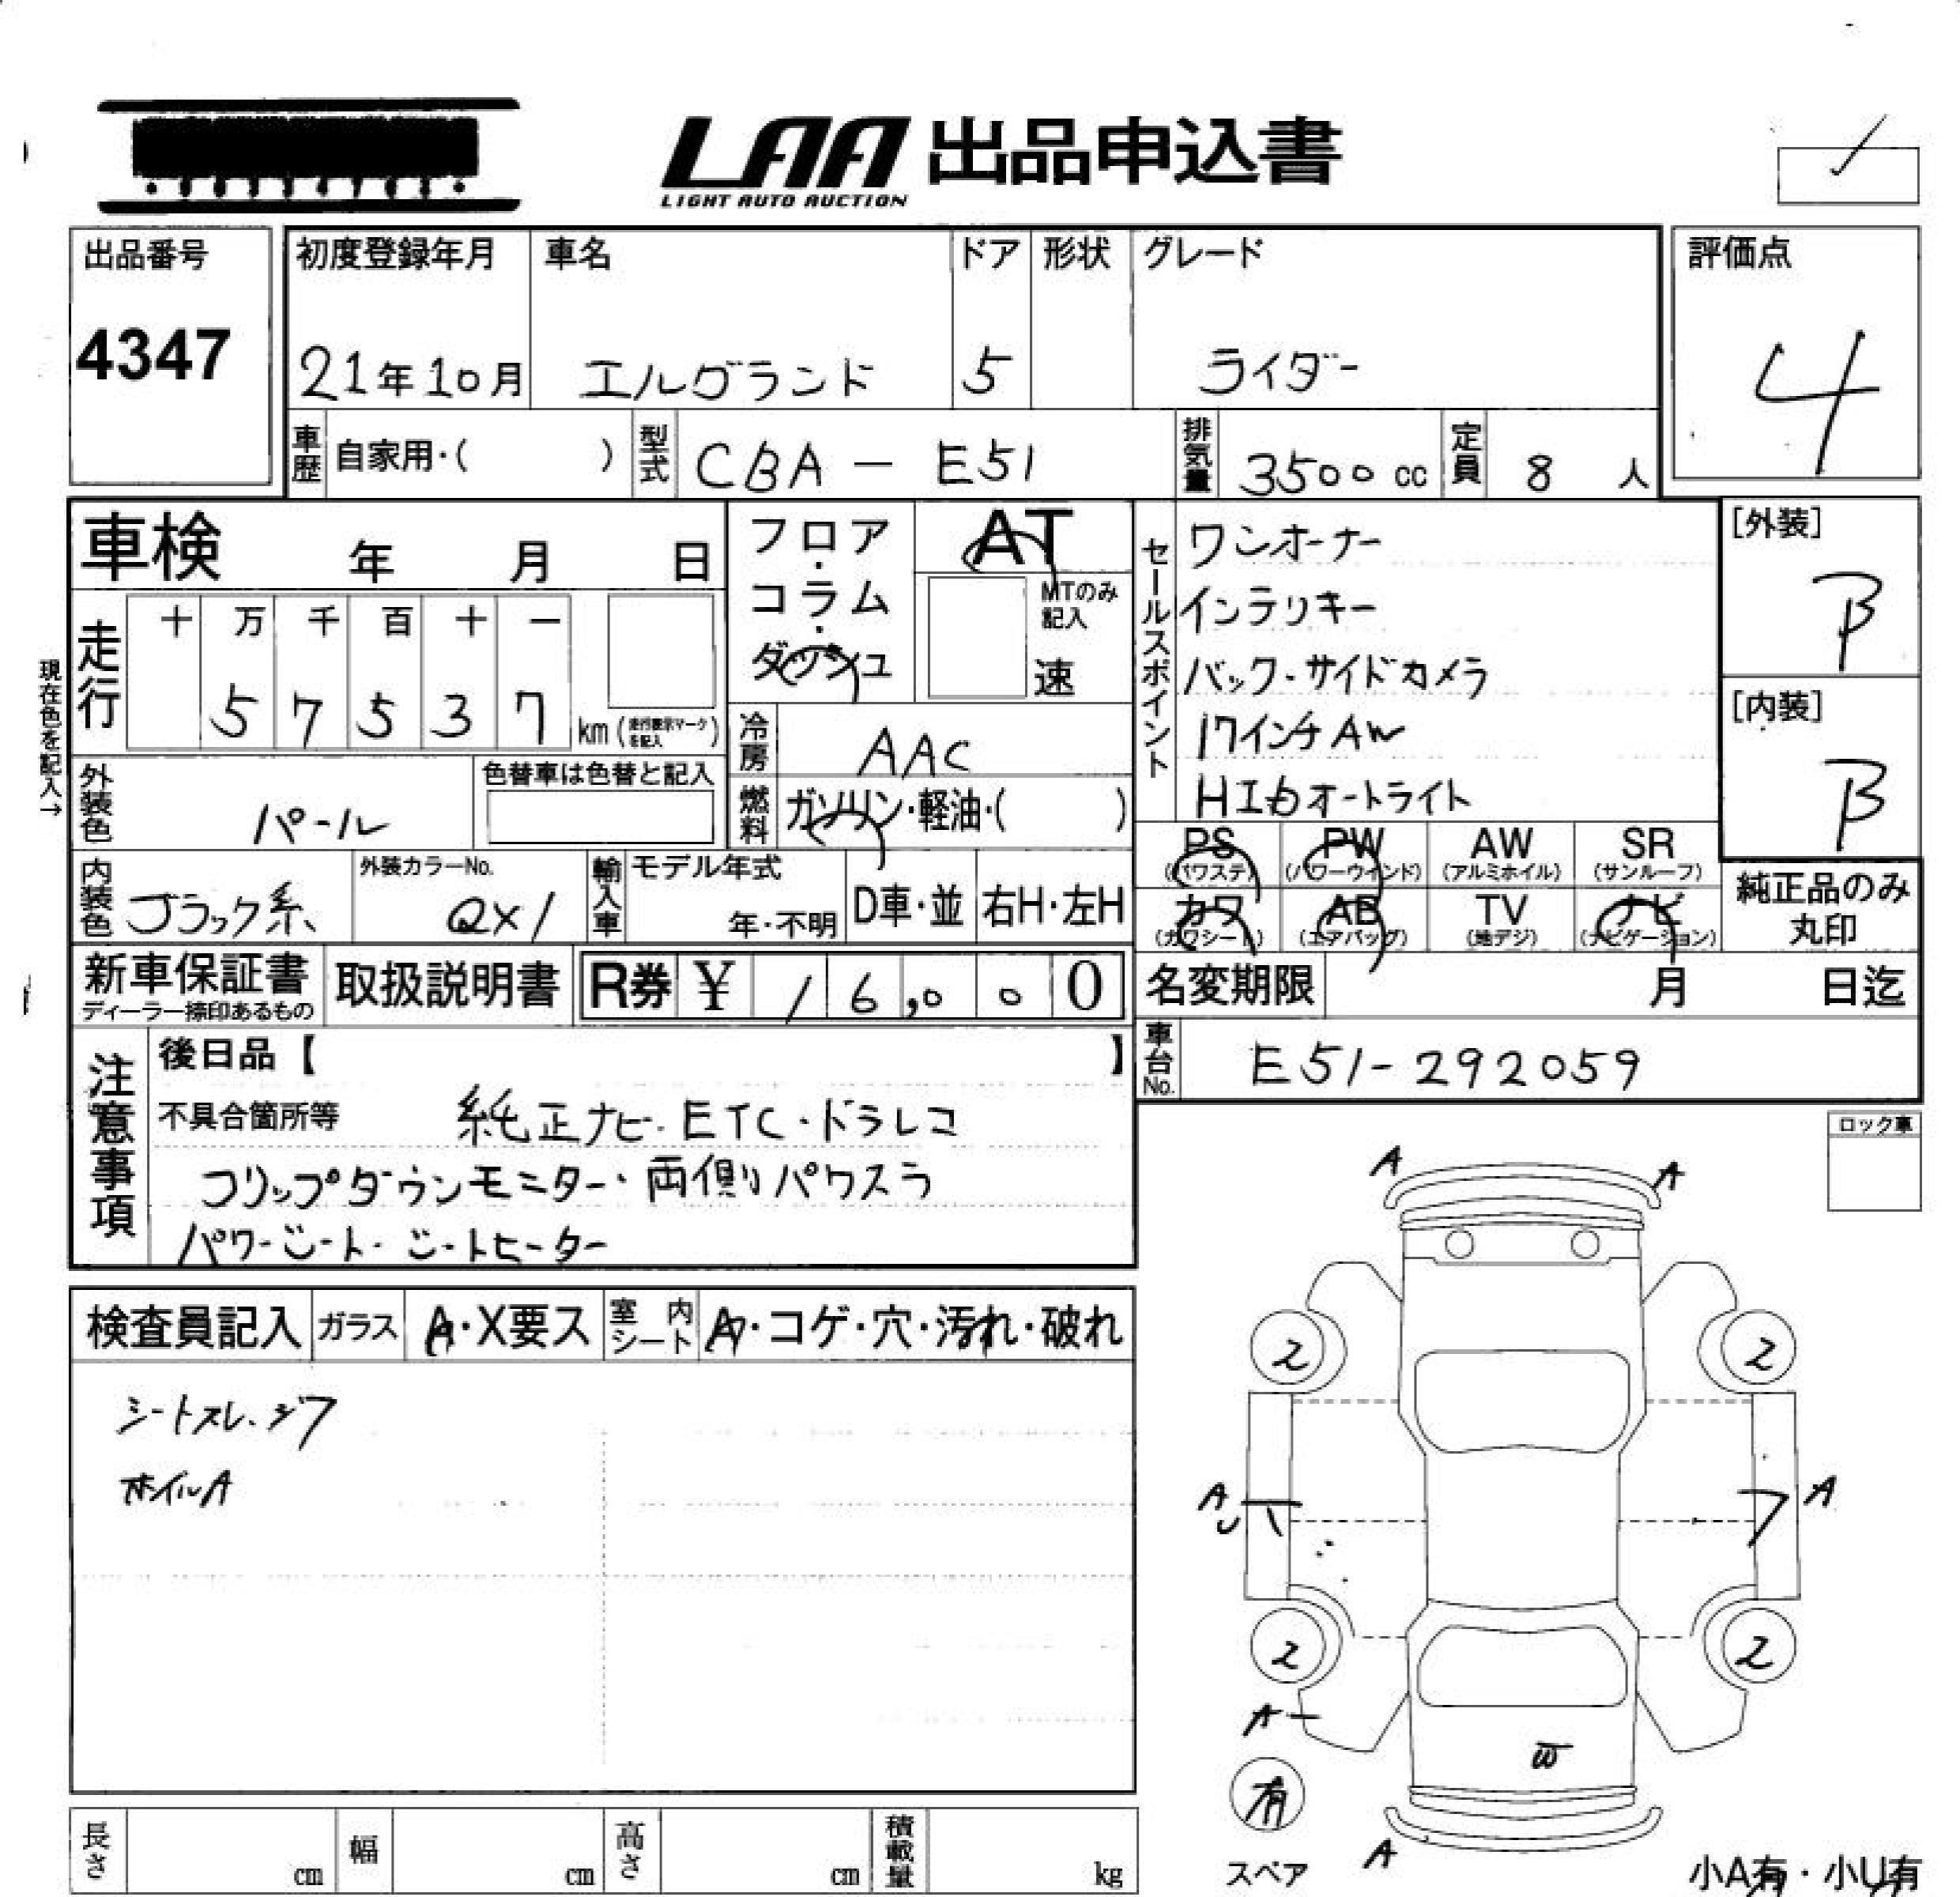 LAA 出品申込書
LIGHT AUTO AUCTION
出品番号
4347
初度登録年月 車名 ドア 形状 グレード
21年10月 エルグランド 5 ライダー
評価点
4
車歴 自家用・( ) 型式 CBA－E51 排気量 3500cc 定員 8人
車検 年 月 日
フロア・コラム・ダッシュ
AT
MTのみ記入
速
セールスポイント
ワンオーナー
インテリキー
バック・サイドカメラ
17インチAW
HIDオートライト
[外装]
B
[内装]
B
現在色を記入→
走行 十 万 千 百 十 一
5 7 5 3 7 km (走行表示マークを記入)
冷房 AAC
外装色 パール
色替車は色替と記入
燃料 ガソリン・軽油・( )
PS (パワステ) PW (パワーウインド) AW (アルミホイル) SR (サンルーフ)
カワ (カワシート) AB (エアバッグ) TV (地デジ) ナビ (ナビゲーション)
純正品のみ丸印
内装色 ブラック系
外装カラーNo.
QX1
輸入車 モデル年式
年・不明 D車・並 右H・左H
新車保証書
ディーラー捺印あるもの
取扱説明書 R券 ¥ 16,000
名変期限 月 日迄
車台No. E51-292059
注意事項
後日品【 】
不具合箇所等 純正ナビ・ETC・ドラレコ
フリップダウンモニター・両側パワスラ
パワーシート・シートヒーター
ロック車
検査員記入 ガラス A・X要ス 室内シート A・コゲ・穴・汚れ・破れ
シートスレ・シワ
ホイルA
A A
2 2
A A
U
2 2
A
W
有
スペア
A
小A有・小U有
長さ cm 幅 cm 高さ cm 積載量 kg